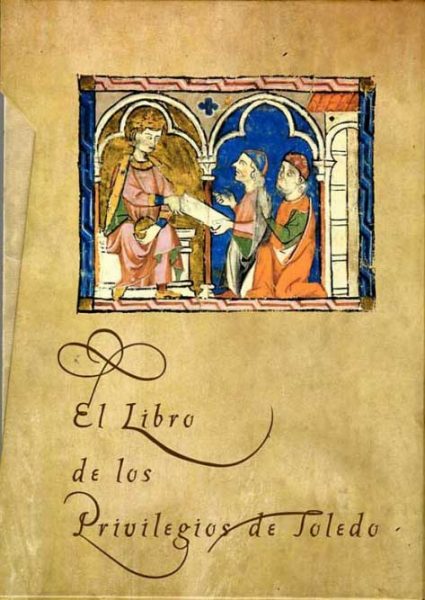 El Libro
de los
Privilegios de Toledo